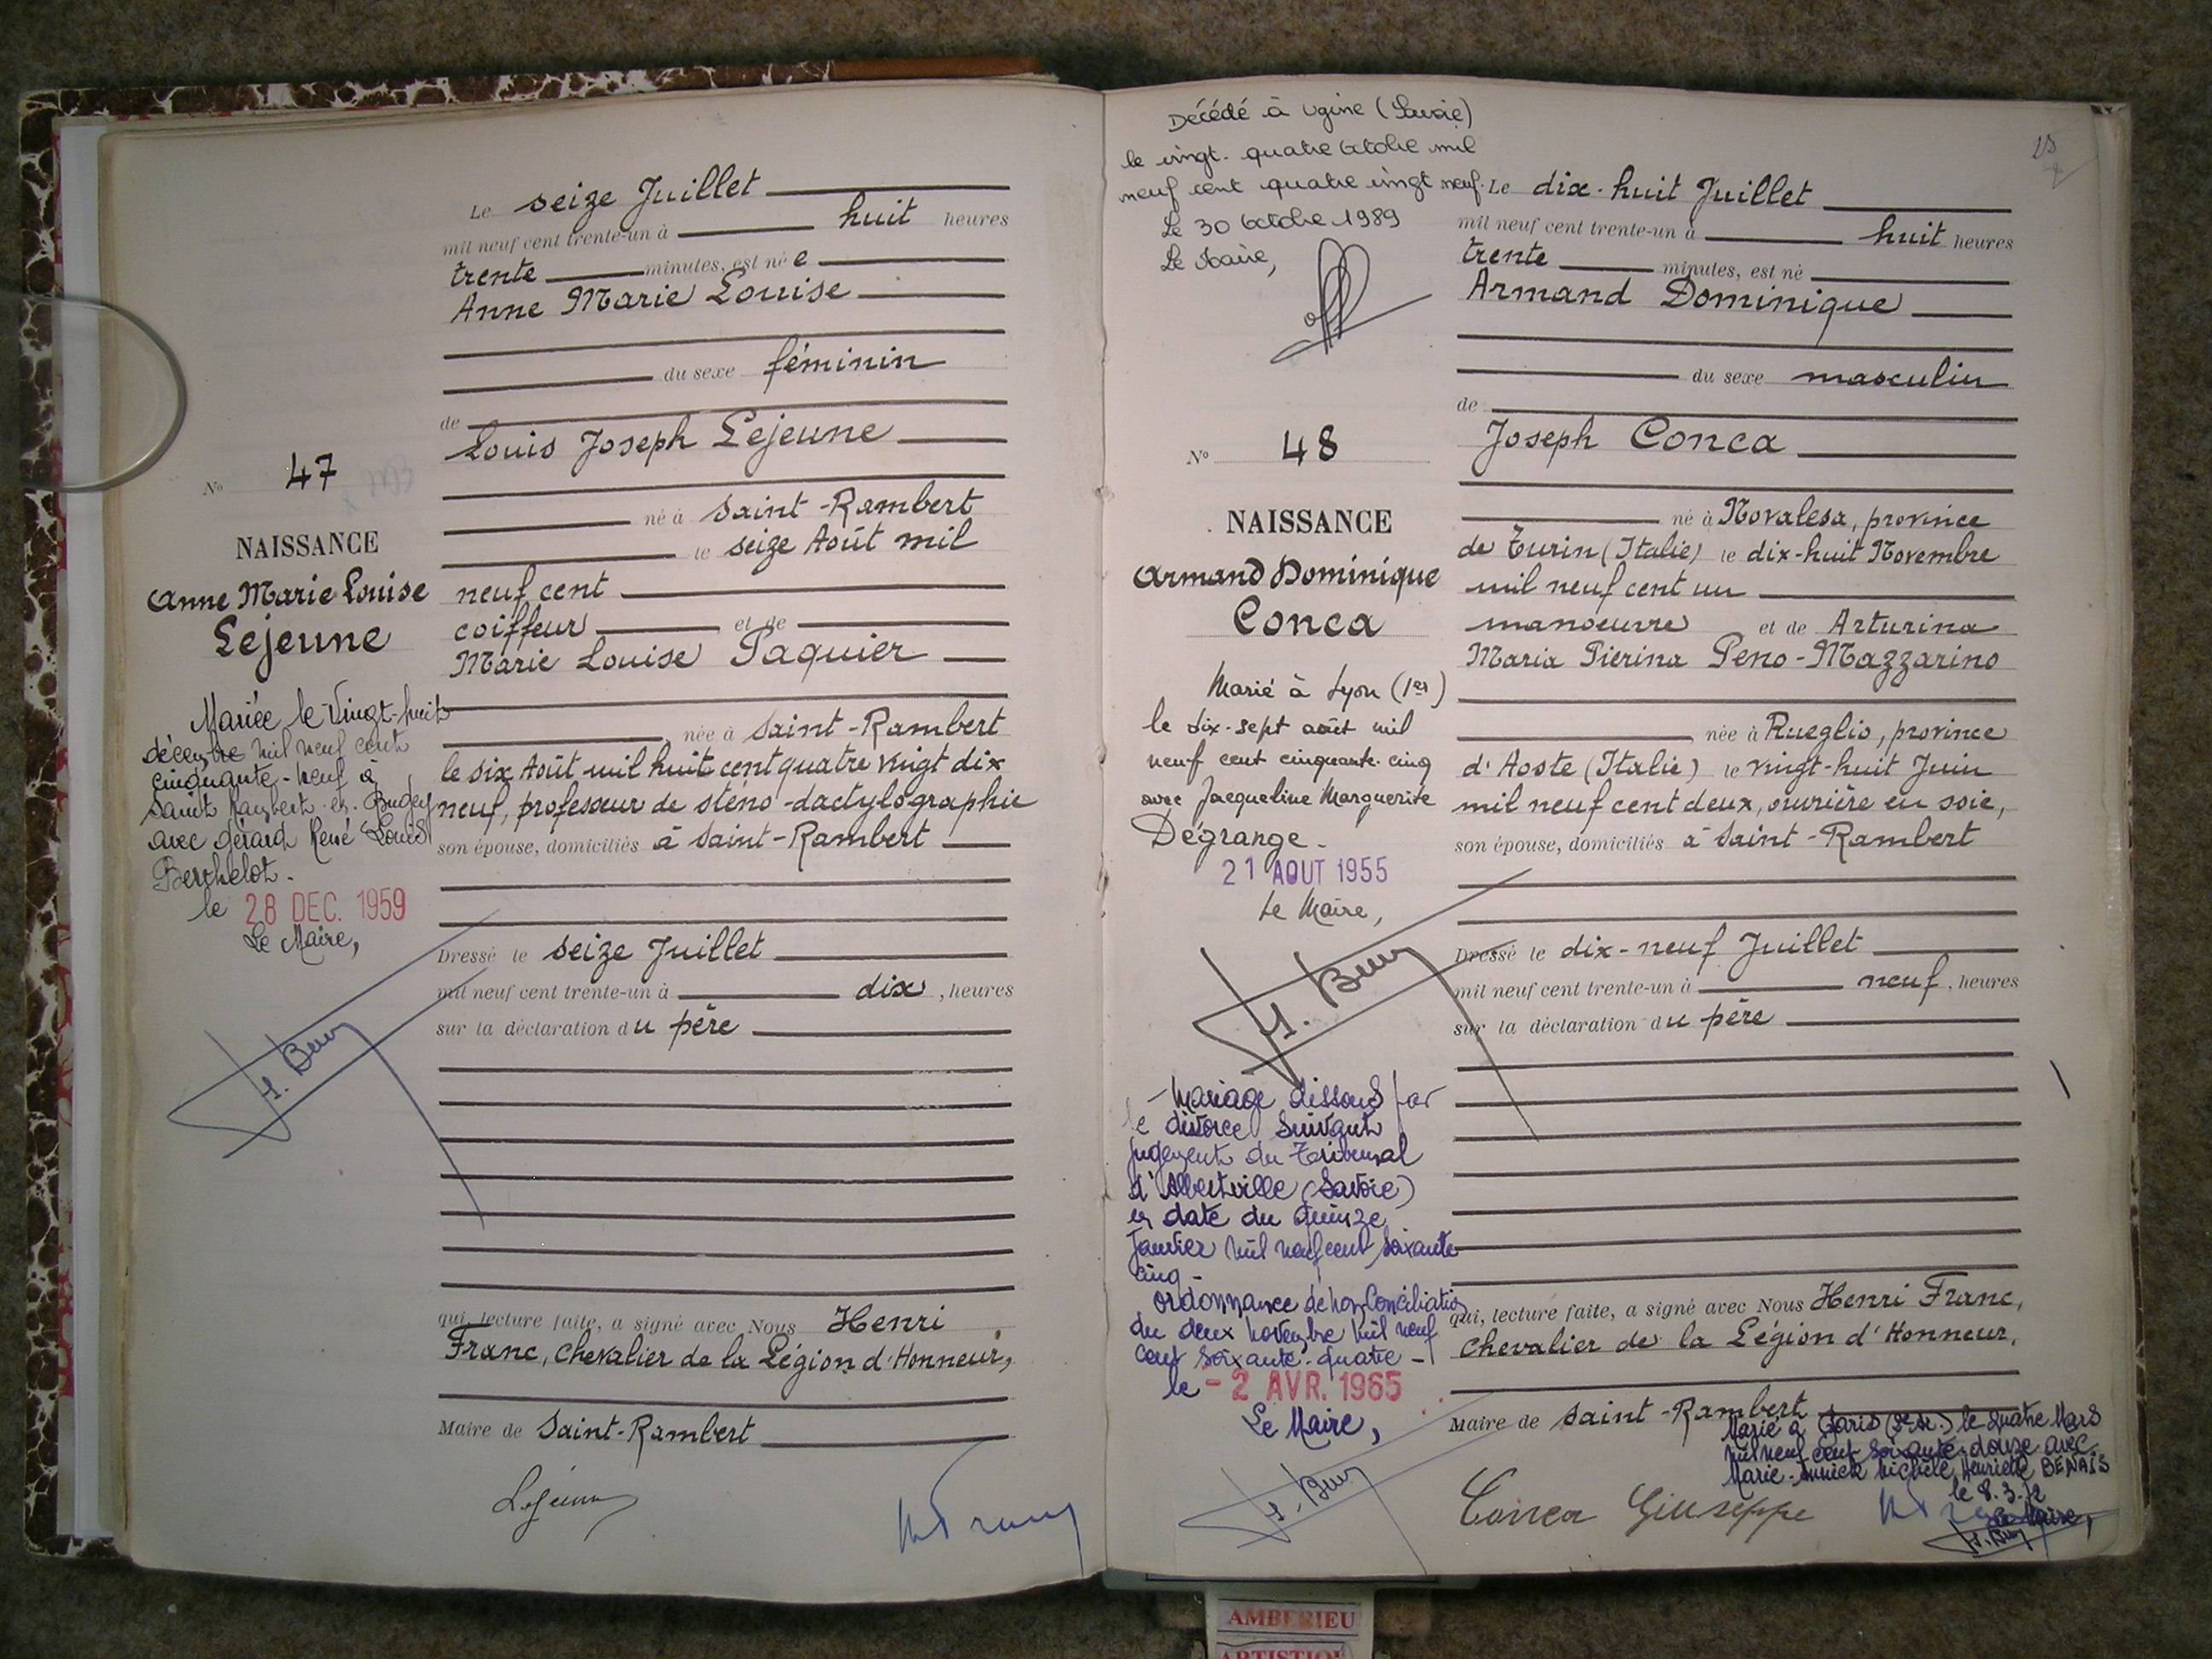 Le seize Juillet
mil neuf cent trente-un à huit heures
trente minutes, est née
Anne Marie Louise
du sexe féminin
de
Louis Joseph Lejeune
né à Saint-Rambert
le seize Août mil
neuf cent
coiffeur et de
Marie Louise Paquier
née à Saint-Rambert
le six Août mil huit cent quatre vingt dix
neuf, professeur de sténo-dactylographie
son épouse, domiciliés à Saint-Rambert
Dressé le seize Juillet
mil neuf cent trente-un à dix, heures
sur la déclaration du père
qui, lecture faite, a signé avec Nous Henri
Franc, Chevalier de la Légion d'Honneur,
Maire de Saint-Rambert
Lejeune
N° 47
NAISSANCE
Anne Marie Louise
Lejeune
Mariée le Vingt-huit
décembre mil neuf cent
cinquante-neuf à
Saint Rambert-en-Bugey
avec Gérard René Louis
Berthelot.
le 28 DEC. 1959
Le Maire,
Décédé à Ugine (Savoie)
le vingt-quatre octobre mil
neuf cent quatre vingt neuf.
Le 30 octobre 1989
Le Maire,
N° 48
NAISSANCE
Armand Dominique
Conca
Marié à Lyon (1er)
le dix-sept août mil
neuf cent cinquante-cinq
avec Jacqueline Marguerite
Dégrange.
21 AOUT 1955
Le Maire,
Mariage dissous par
le divorce suivant
jugement du Tribunal
d'Albertville (Savoie)
en date du quinze
Janvier mil neuf cent soixante
cinq.
ordonnance de non Conciliation
du deux novembre mil neuf
cent soixante-quatre -
le - 2 AVR. 1965
Le Maire,
Le dix-huit Juillet
mil neuf cent trente-un à huit heures
trente minutes, est né
Armand Dominique
du sexe masculin
de
Joseph Conca
né à Novalesa, province
de Turin (Italie) le dix-huit Novembre
mil neuf cent un
manoeuvre et de Arturina
Maria Pierina Peno-Mazzarino
née à Rueglio, province
d'Aoste (Italie) le vingt-huit Juin
mil neuf cent deux, ouvrière en soie,
son épouse, domiciliés à Saint-Rambert
Dressé le dix-neuf Juillet
mil neuf cent trente-un à neuf, heures
sur la déclaration du père
qui, lecture faite, a signé avec Nous Henri Franc,
Chevalier de la Légion d'Honneur,
Maire de Saint-Rambert
Marié à Paris le quatre Mars
mil neuf cent soixante-douze avec
Marie-Annick Michèle Henriette BENAIS
le 8.3.72
Le Maire,
Conca Giuseppe
AMBERIEU